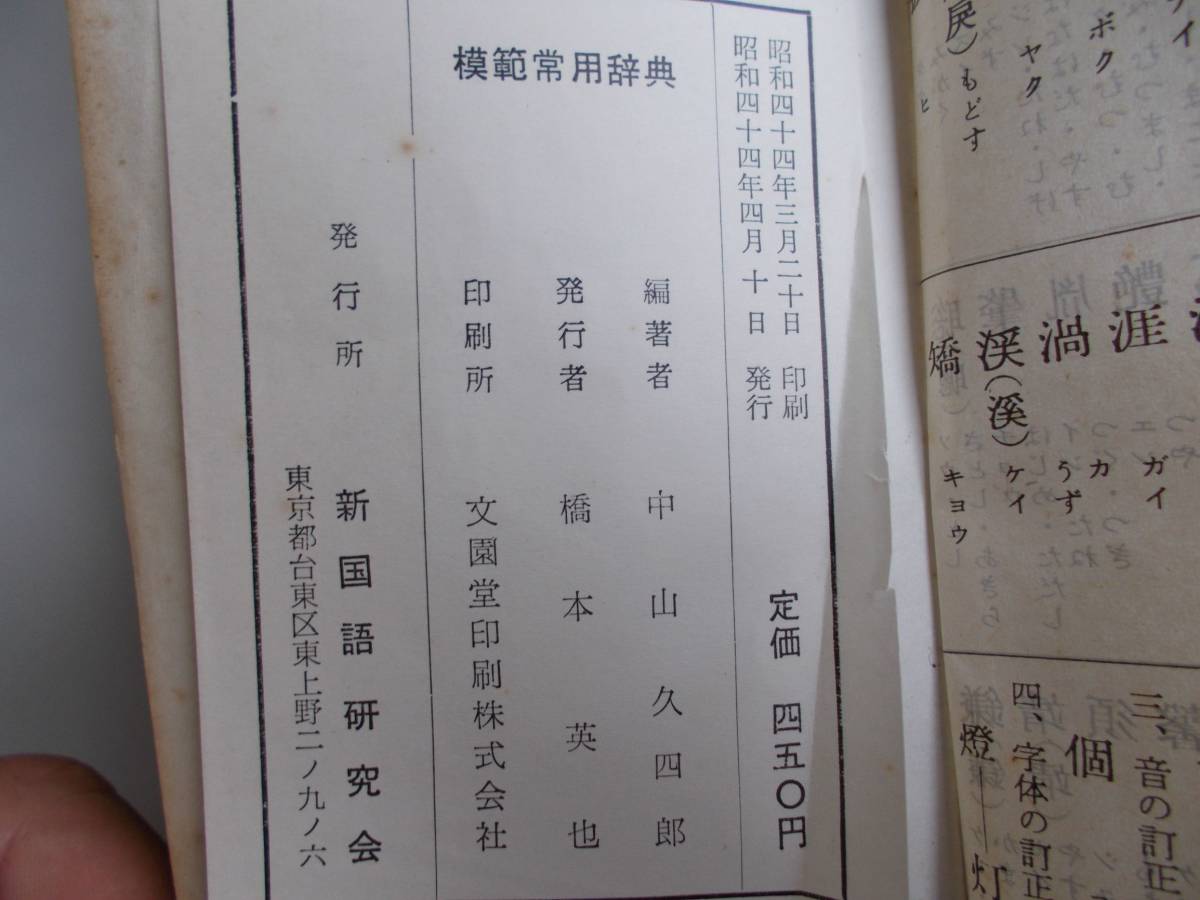 戻)もどす
ボク
ヤク
ヒ
涯 ガイ
渦 カ うず
渓(溪)ケイ
矯 キョウ
三、音の訂正
個
四、字体の訂正
燈—灯
昭和四十四年三月二十日 印刷
昭和四十四年四月十日 発行
定価 四五〇円
模範常用辞典
編著者 中山久四郎
発行者 橋本英也
印刷所 文園堂印刷株式会社
発行所 新国語研究会
東京都台東区東上野二ノ九ノ六